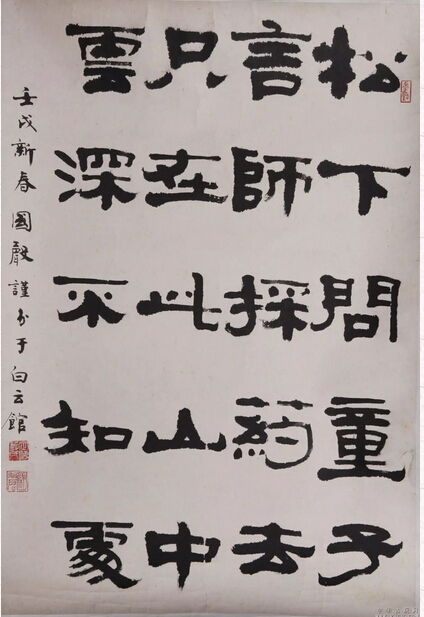 松下問童子
言師採药去
只在此山中
雲深不知處
壬戌新春國聲謹书于白云館